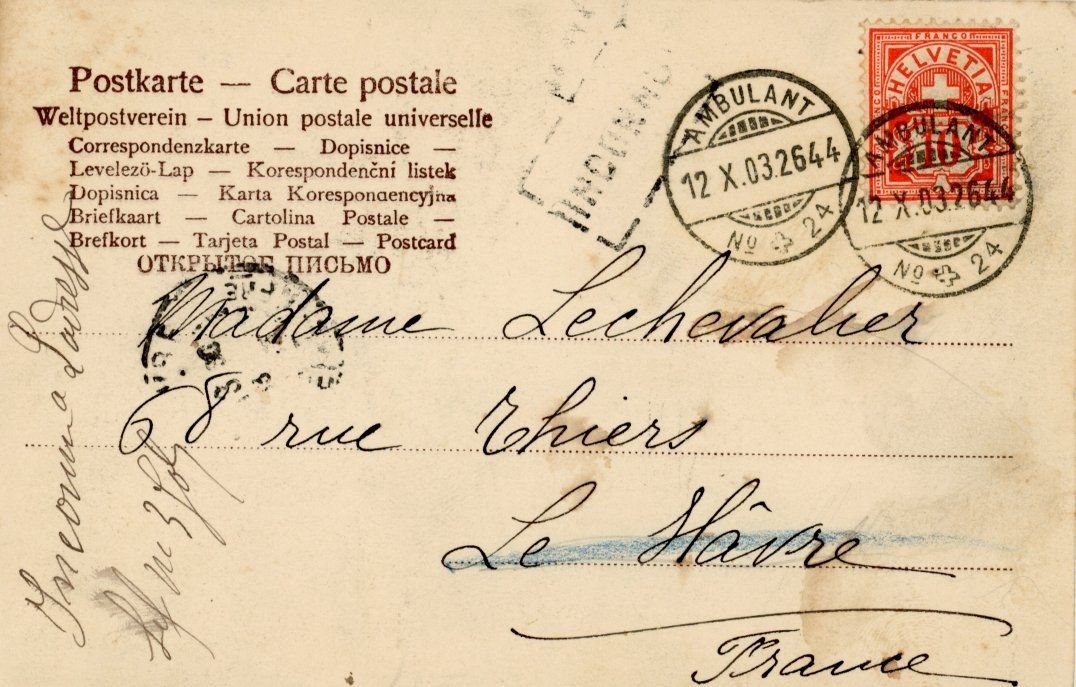 Postkarte — Carte postale
Weltpostverein – Union postale universelle
Correspondenzkarte — Dopisnice —
Levelező-Lap — Korespondenční lístek
Dopisnica — Karta Korespondencyjna
Briefkaart — Cartolina Postale —
Brefkort — Tarjeta Postal — Postcard
ОТКРЫТОЕ ПИСЬМО
INCONNU
AMBULANT
12 X.03.2644
No 24
FRANCO
HELVETIA
10
AMBULANT
12 X.03.2644
No 24
Madame Lechevalier
68 rue Thiers
Le Hâvre
France
Inconnu à l'adresse